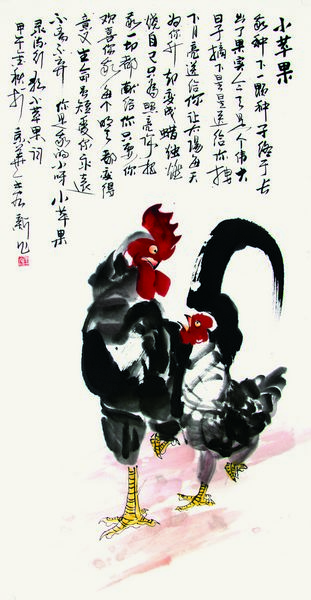 小苹果
我种下一颗种子终于长
出了果实今天是个伟大
日子摘下星星送给你拽
下月亮送给你让太阳每天
为你升起变成蜡烛燃
烧自己只为照亮你把
我一切都献给你只要你
欢喜你让我每个明天都变得
意义生命虽短爱你永远
不离不弃你是我的小呀小苹果
录流行歌小苹果词
甲午